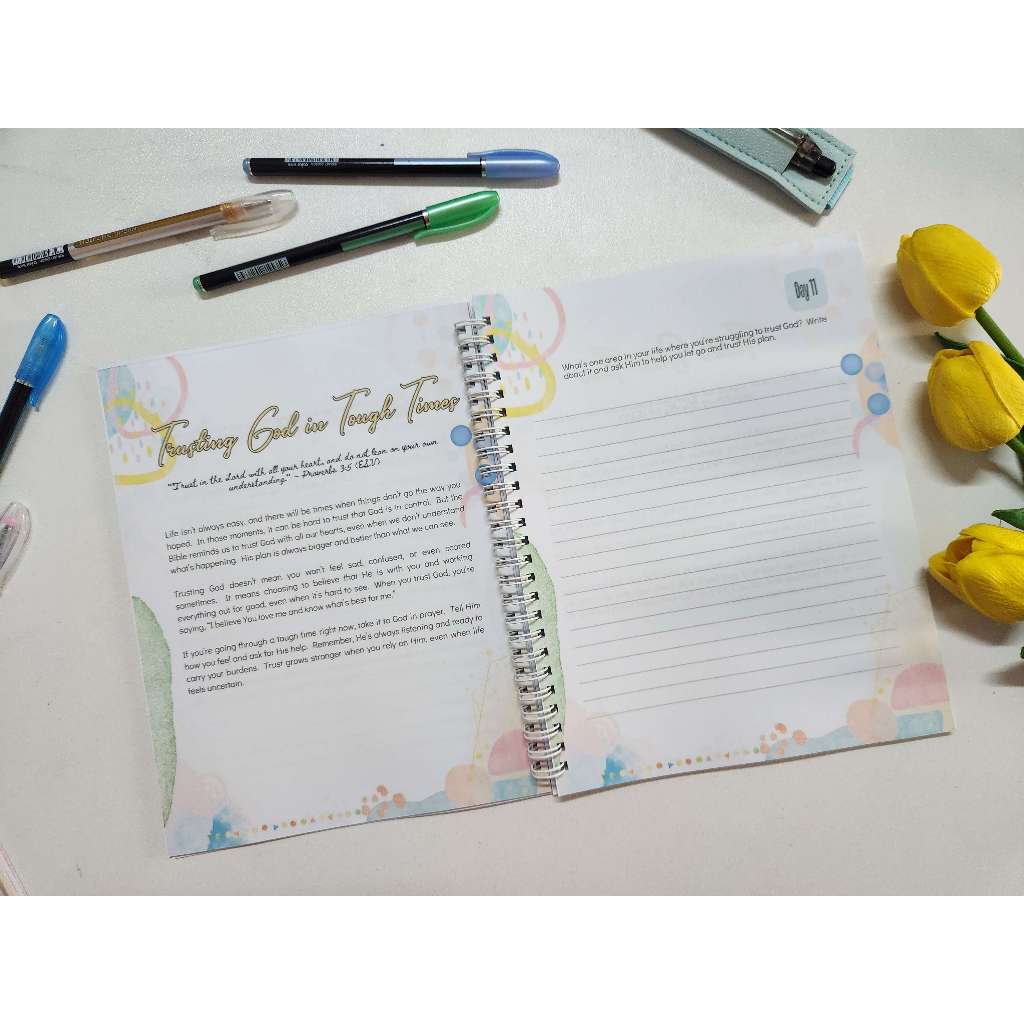 Trusting God in Tough Times
"Trust in the Lord with all your heart, and do not lean on your own
understanding." - Proverbs 3:5 (ESV)
Life isn't always easy, and there will be times when things don't go the way you
hoped. In those moments, it can be hard to trust that God is in control. But the
Bible reminds us to trust God with all our hearts, even when we don't understand
what's happening. His plan is always bigger and better than what we can see.
Trusting God doesn't mean you won't feel sad, confused, or even scared
sometimes. It means choosing to believe that He is with you and working
everything out for good, even when it's hard to see. When you trust God, you're
saying, "I believe You love me and know what's best for me."
If you're going through a tough time right now, take it to God in prayer. Tell Him
how you feel and ask for His help. Remember, He's always listening and ready to
carry your burdens. Trust grows stronger when you rely on Him, even when life
feels uncertain.
Day 11
What's one area in your life where you're struggling to trust God? Write
about it and ask Him to help you let go and trust His plan.